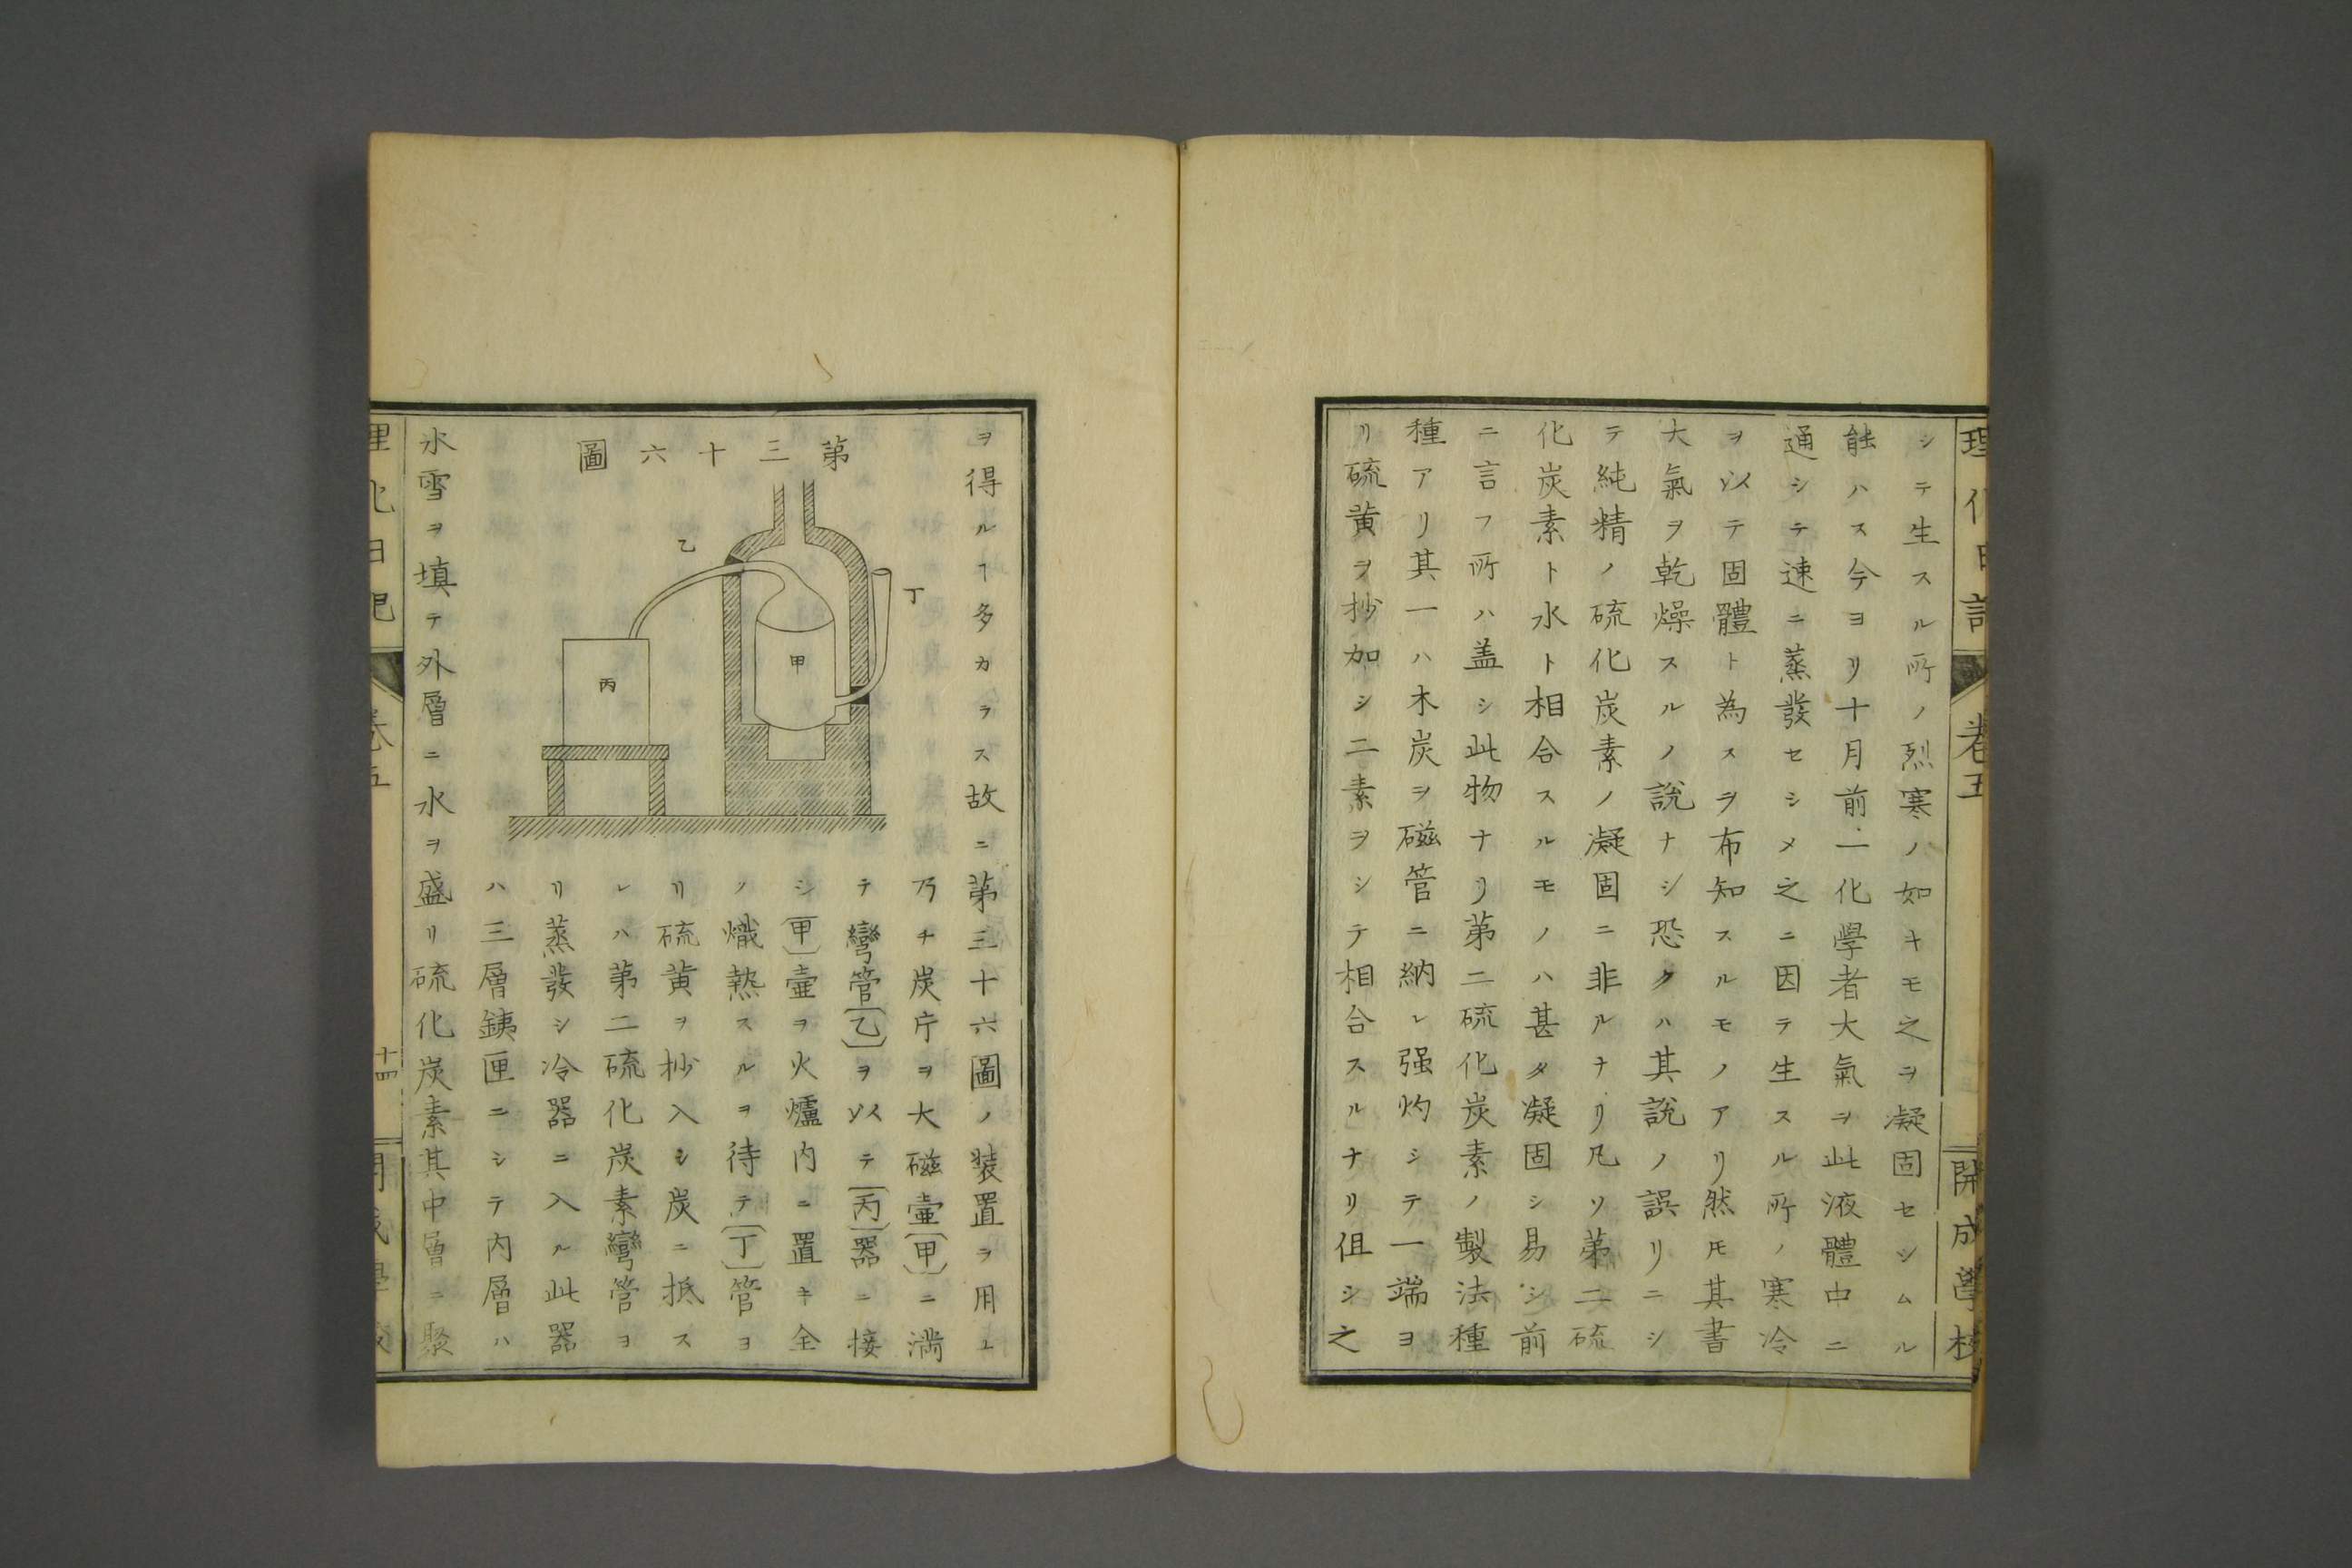 理化日記 卷五 開成學校
シテ生スル所ノ烈寒ノ如キモ之ヲ凝固セシムル
能ハス今ヨリ十月前一化學者大氣ヲ此液體中ニ
通シテ速ニ蒸發セシメ之ニ因テ生スル所ノ寒冷
ヲ以テ固體ト為スヲ布知スルモノアリ然𪜈其書
大氣ヲ乾燥スルノ說ナシ恐クハ其說ノ誤リニシ
テ純精ノ硫化炭素ノ凝固ニ非ルナリ凡ソ苐二硫
化炭素ト水ト相合スルモノハ甚タ凝固シ易シ前
ニ言フ所ハ盖シ此物ナリ苐二硫化炭素ノ製法種
種アリ其一ハ木炭ヲ磁管ニ納レ强灼シテ一端ヨ
リ硫黄ヲ抄加シ二素ヲシテ相合スルナリ但シ之
ヲ得ルヿ多カラス故ニ苐三十六圖ノ装置ヲ用ユ
苐三十六圖
乙
丁
甲
丙
乃チ炭片ヲ大磁壷〔甲〕ニ満
テ彎管〔乙〕ヲ以テ〔丙〕器ニ接
シ〔甲〕壷ヲ火爐内ニ置キ全
ノ熾熱スルヲ待テ〔丁〕管ヨ
リ硫黄ヲ抄入シ炭ニ抵ス
レハ苐二硫化炭素彎管ヨ
リ蒸發シ冷器ニ入ル此器
ハ三層銕匣ニシテ内層ハ
氷雪ヲ填テ外層ニ水ヲ盛リ硫化炭素其中層ニ聚
理化日記 卷五 十四 開成學校